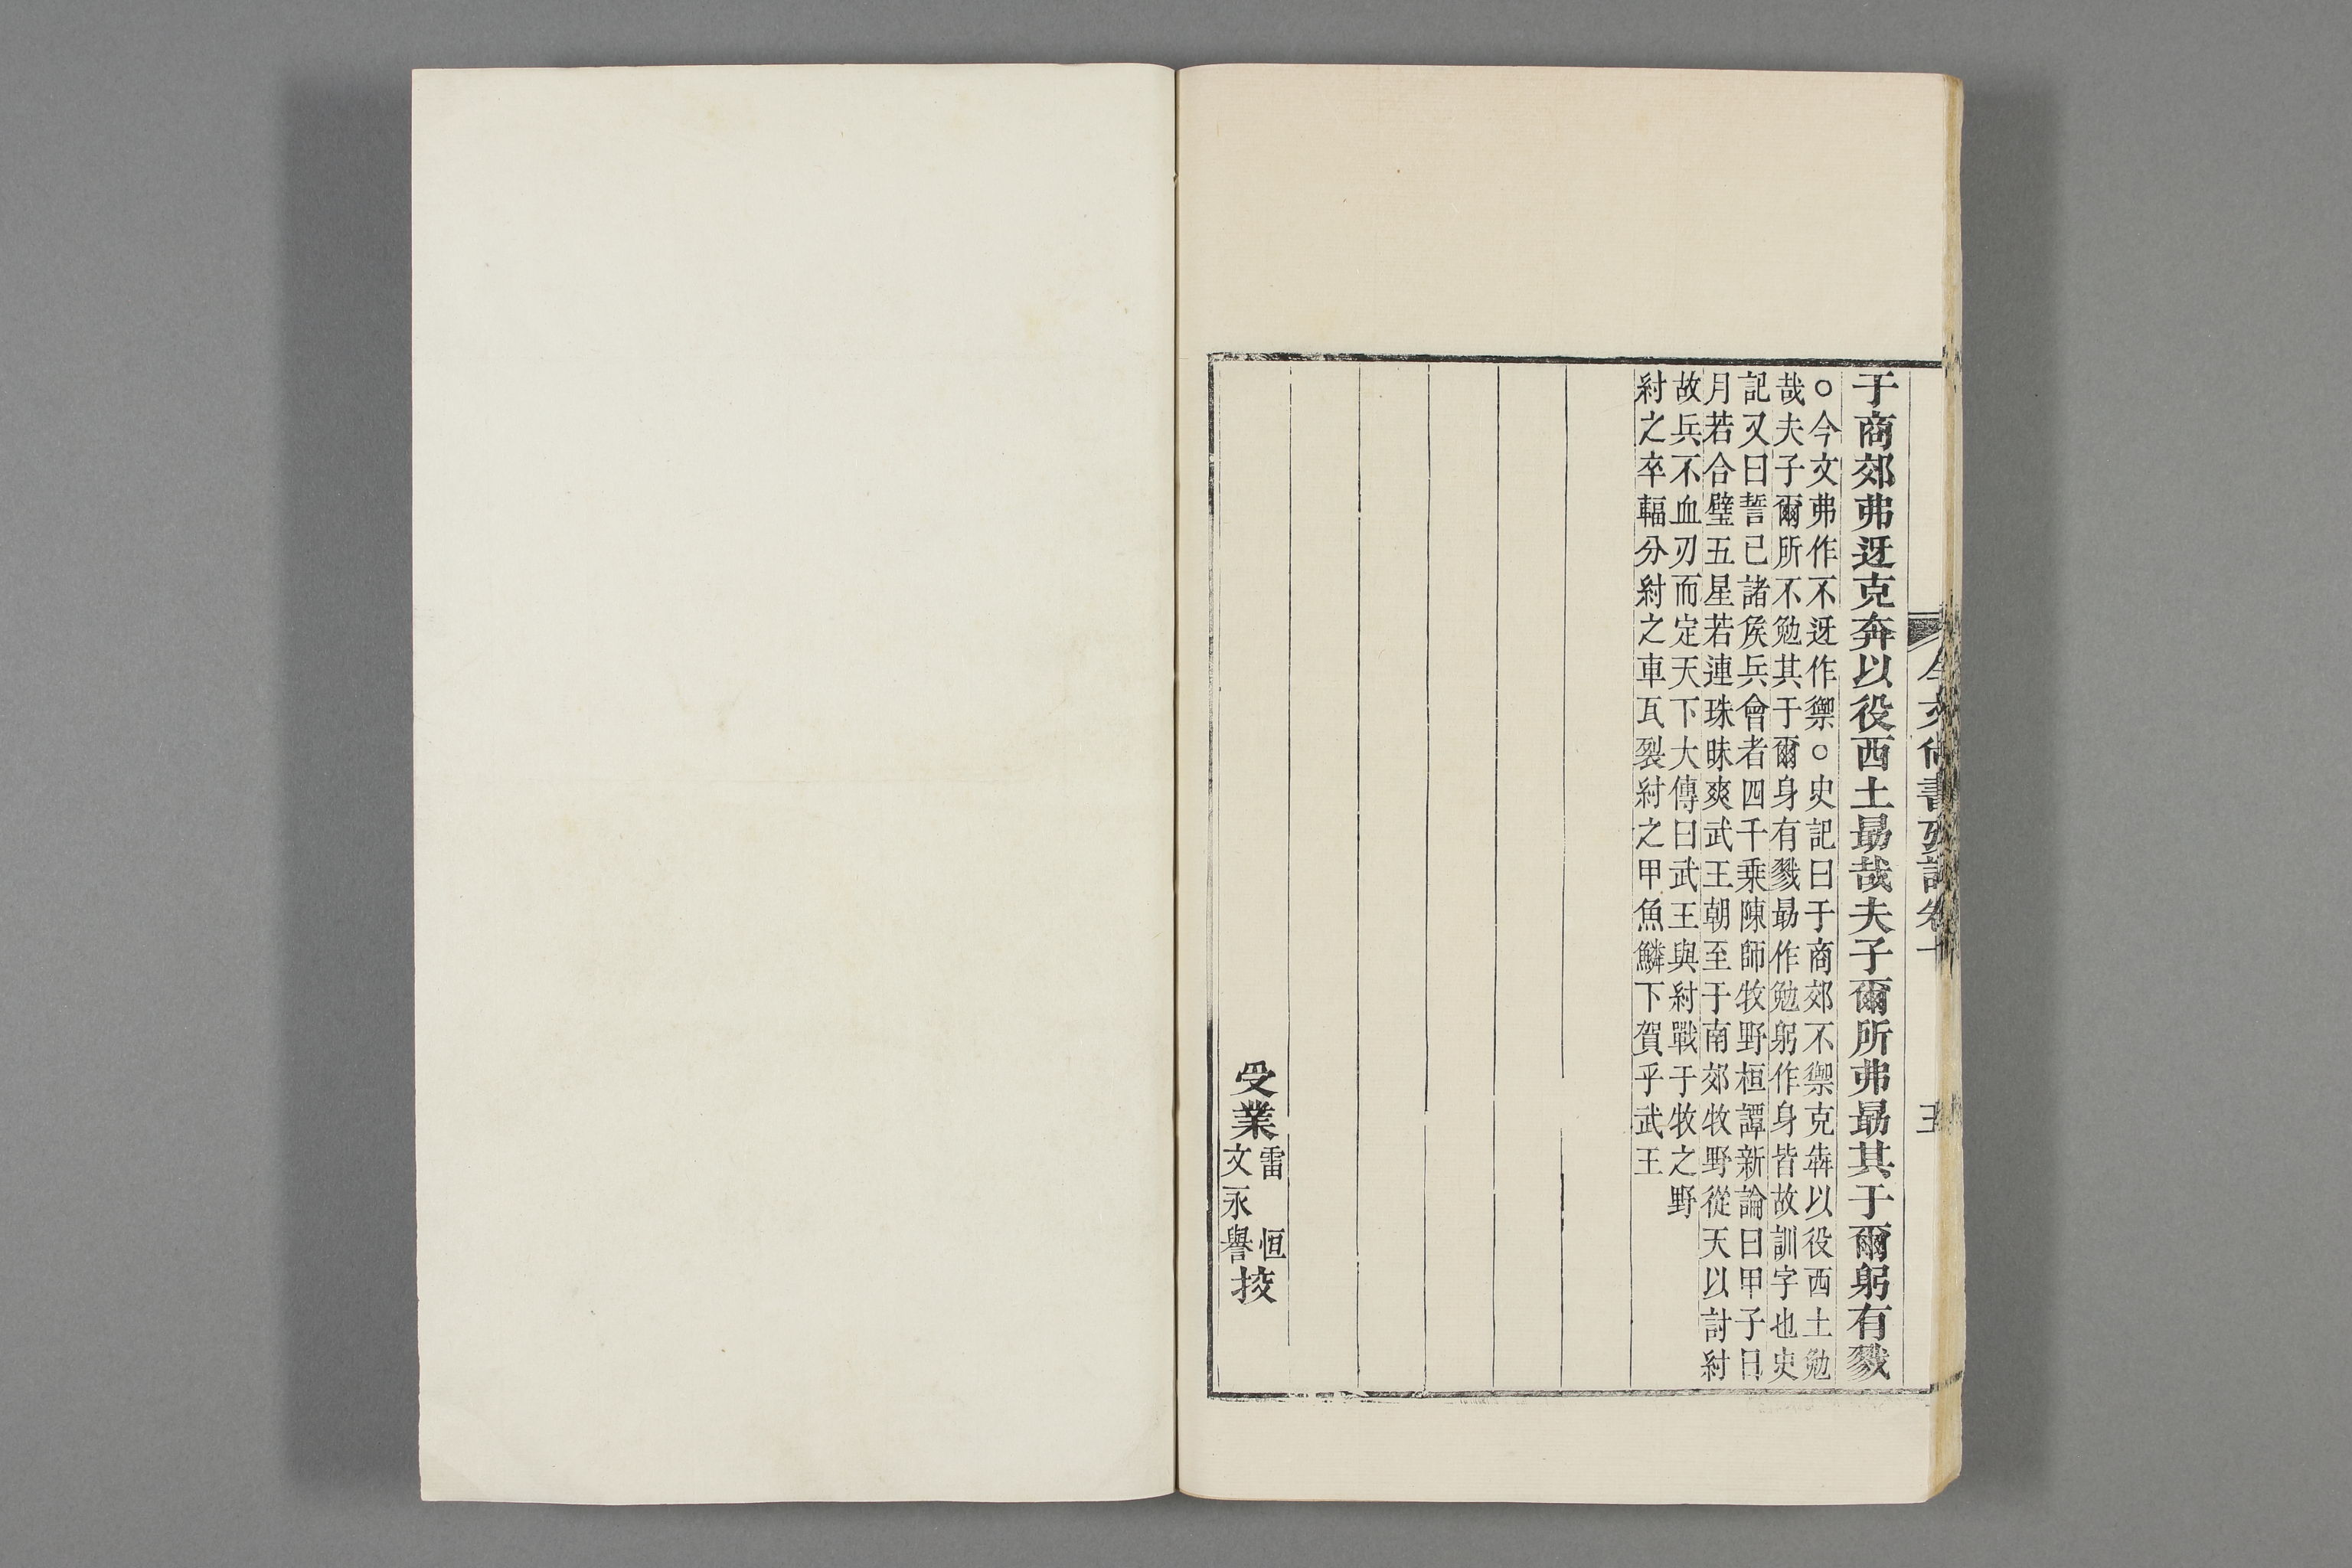 今文尚書攷證卷十
五
于商郊弗迓克奔以役西土勗哉夫子爾所弗勗其于爾躬有戮
○今文弗作不迓作禦○史記曰于商郊不禦克犇以役西土勉
哉夫子爾所不勉其于爾身有戮勗作勉躬作身皆故訓字也史
記又曰誓已諸矦兵會者四千乘陳師牧野桓譚新論曰甲子日
月若合璧五星若連珠昧爽武王朝至于南郊牧野從天以討紂
故兵不血刃而定天下大傳曰武王與紂戰于牧之野
紂之卒輻分紂之車瓦裂紂之甲魚鱗下賀乎武王
受業雷恒
文永譽挍